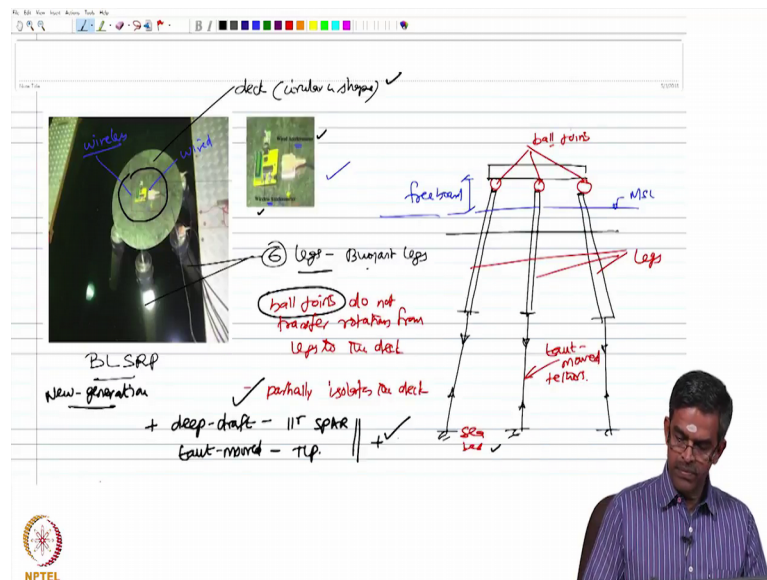 File Edit View Insert Actions Tools Help
B I
Note Title
deck (circular in shape)
wireless
wired
ball joints
freeboard
MSL
⑥ legs - Buoyant legs
legs
ball joints do not
transfer rotation from
legs to the deck
BLSRP
New-generation
- partially isolates the deck
taut-
moored
tethers.
+ deep-draft - llr SPAR
taut-moored - TLP.
+
Sea
bed
NPTEL